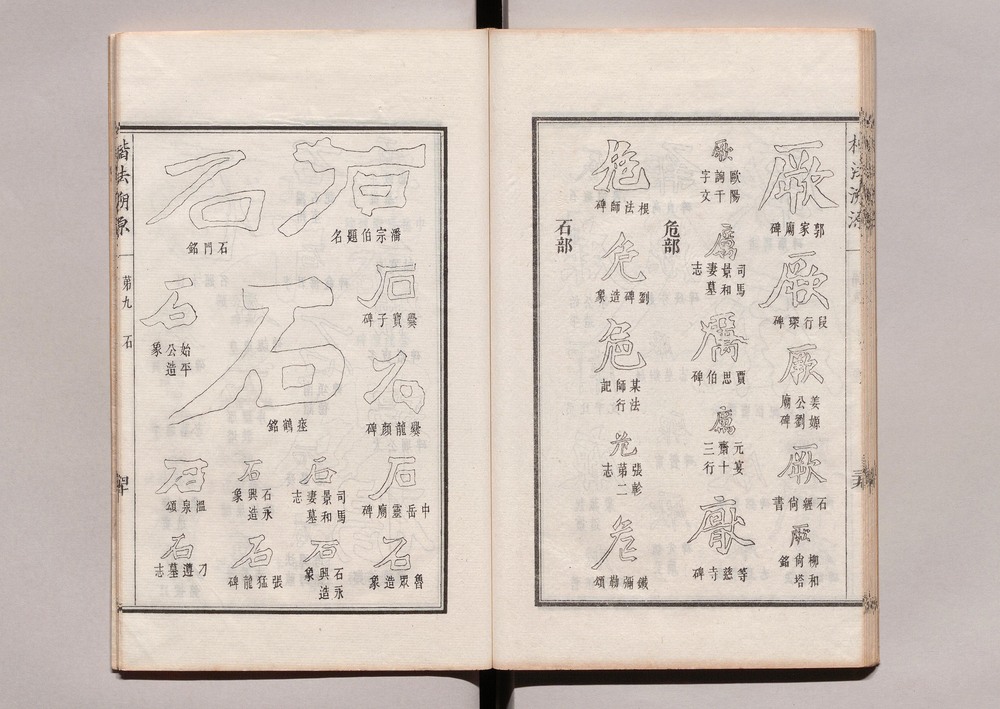 厥
郭家廟碑
厥
段行琛碑
厥
姜嫄
公劉
廟碑
厥
石經尙書
厥
柳和
尙塔
銘
厥
歐陽
詢千
字文
厲
司馬
景和
妻墓
志
厲
賈思伯碑
厲
元宴
齋十
三行
廚
等慈寺碑
危部
危
根法師碑
危
劉碑造象
危
某法
師行
記
危
張軫
第二
志
危
鐵彌勒頌
石部
石
潘宗伯題名
石
爨寶子碑
石
爨龍顏碑
石
中岳靈廟碑
石
魯眾造象
石
瘞鶴銘
石
司馬
景和
妻墓
志
石
石永
興造
象
石
石永
興造
象
石
張猛龍碑
石
石門銘
石
始平
公造
象
石
溫泉頌
石
刁遵墓志
楷法溯原
第九
石